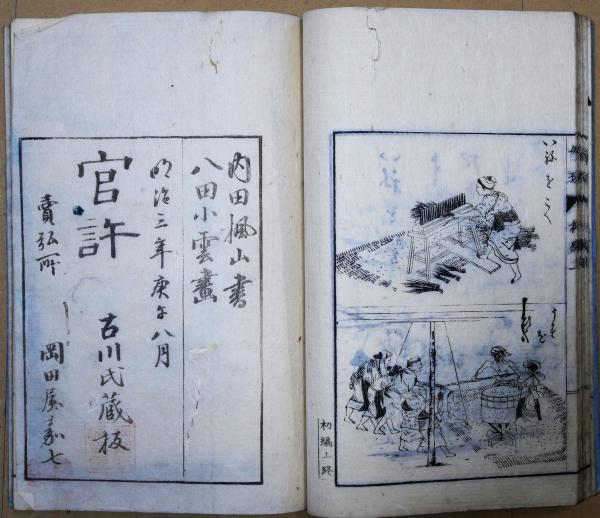 いねをこく
うすを
ひく
初編上終
内田楓山書
八田小雲畫
明治三年庚午八月
官許
古川氏蔵板
賣弘所
岡田屋嘉七